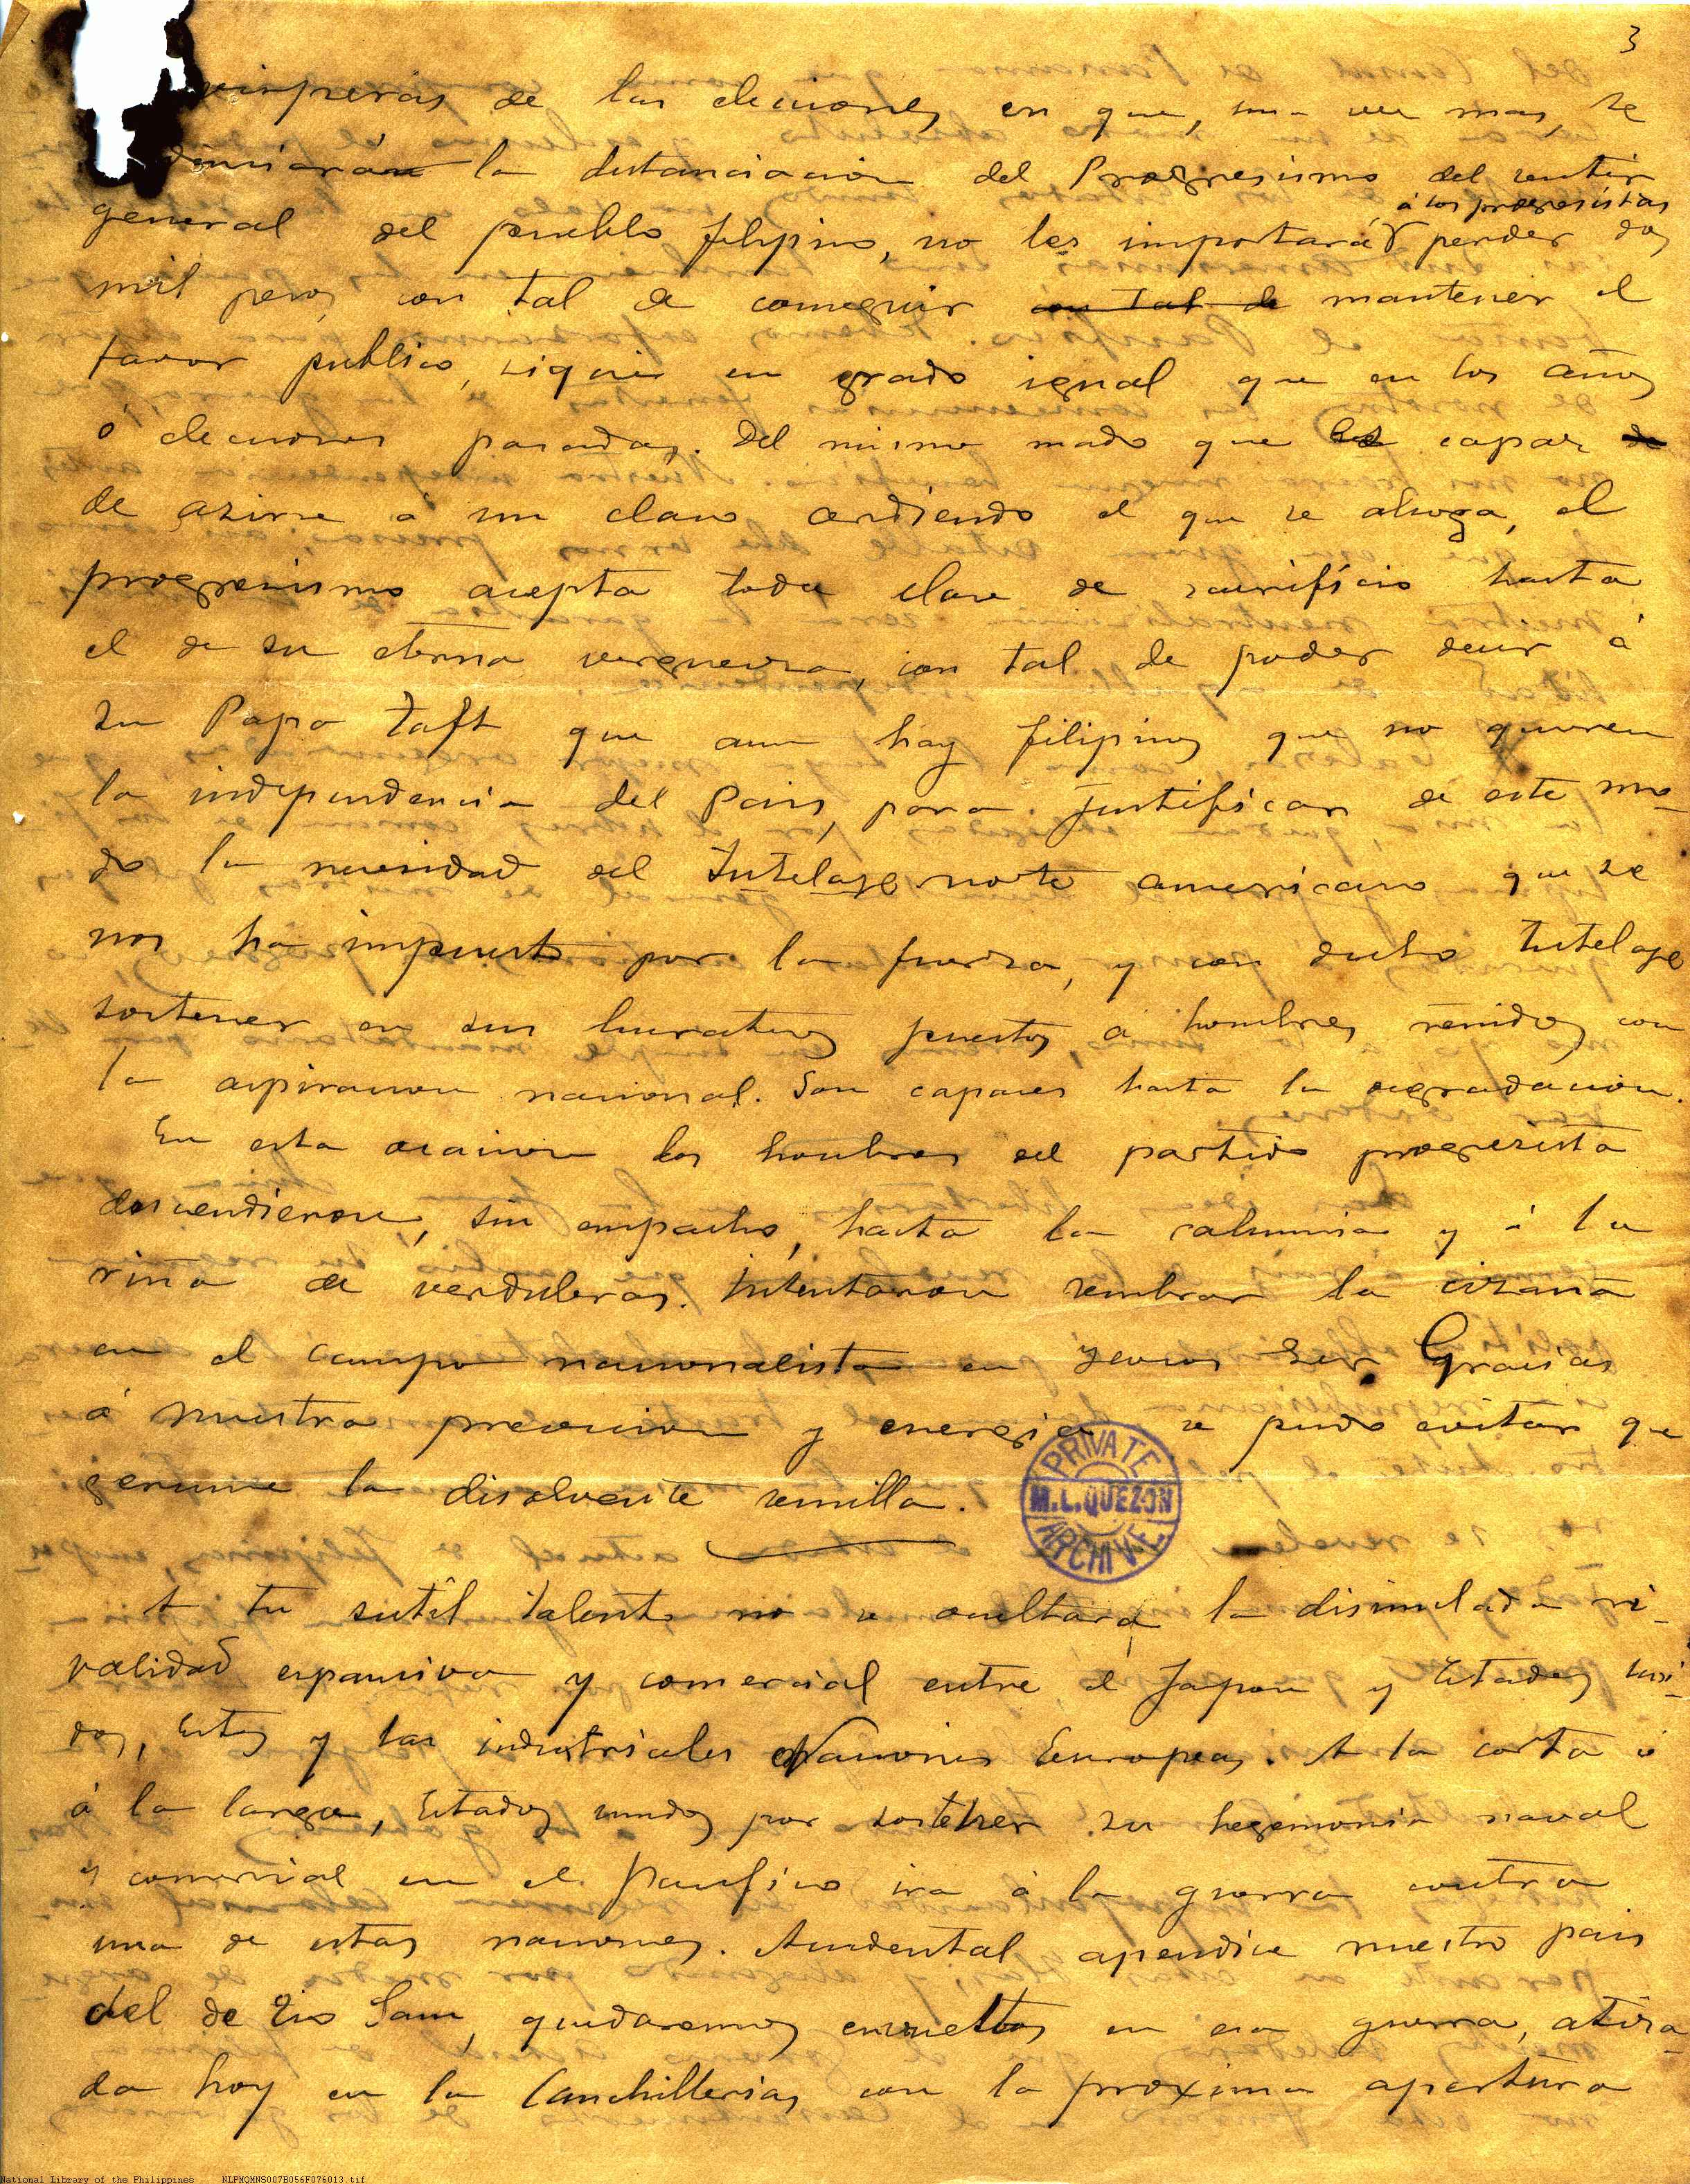 3
vísperas de las elecciones en que, una vez mas, se
denunciará la distanciacion del Progresismo del sentir
á los progresistas
general del pueblo filipino, no les importará perder dos
mil pesos con tal de conseguir con tal de mantener el
favor publico, siquier en grado igual que en los años
ó elecciones pasadas. Del mismo modo que es capaz de
de azirse á un clavo ardiendo el que se ahoga, el
progresismo acepta toda clase de sacrificio hasta
el de su eterna verguenza, con tal de poder decir á
su Papa Taft que aun hay filipinos que no quieren
la independencia del Pais, para justificar de este mo-
do la necesidad del Tutelage norte americano que se
nos ha impuesto por la fuerza, y con dicho Tutelage
sostener en sus lucrativos puestos á hombres reñidos con
la aspiracion nacional. Son capaces hasta la degradacion.
En esta ocasion los hombres del partido progresista
descendieron, sin empacho, hasta la calumnia y á la
riña de verduleras. Intentaron sembrar la cizaña
en el campo nacionalista en Gracias
á nuestra prevision y energia se pudo evitar que
germine la disolvente semilla.
PRIVATE
M.L.QUEZON
ARCHIVE
A tu sutil talento no se ocultará la disimulada ri-
validad expansiva y comercial entre el Japon y Estados Uni-
dos, Estos y las industriales Naciones Europeas. A la corta ó
á la larga, Estados unidos por sostener su hegemonia naval
y comercial en el Pacifico ira á la guerra contra
una de estas naciones. Accidental apendice nuestro pais
del de Tio Sam, quedaremos envueltos en esa guerra, atiza-
da hoy en la Canchillerias con la proxima apertura
National Library of the Philippines NLPMQMNS007B056F076013.tif